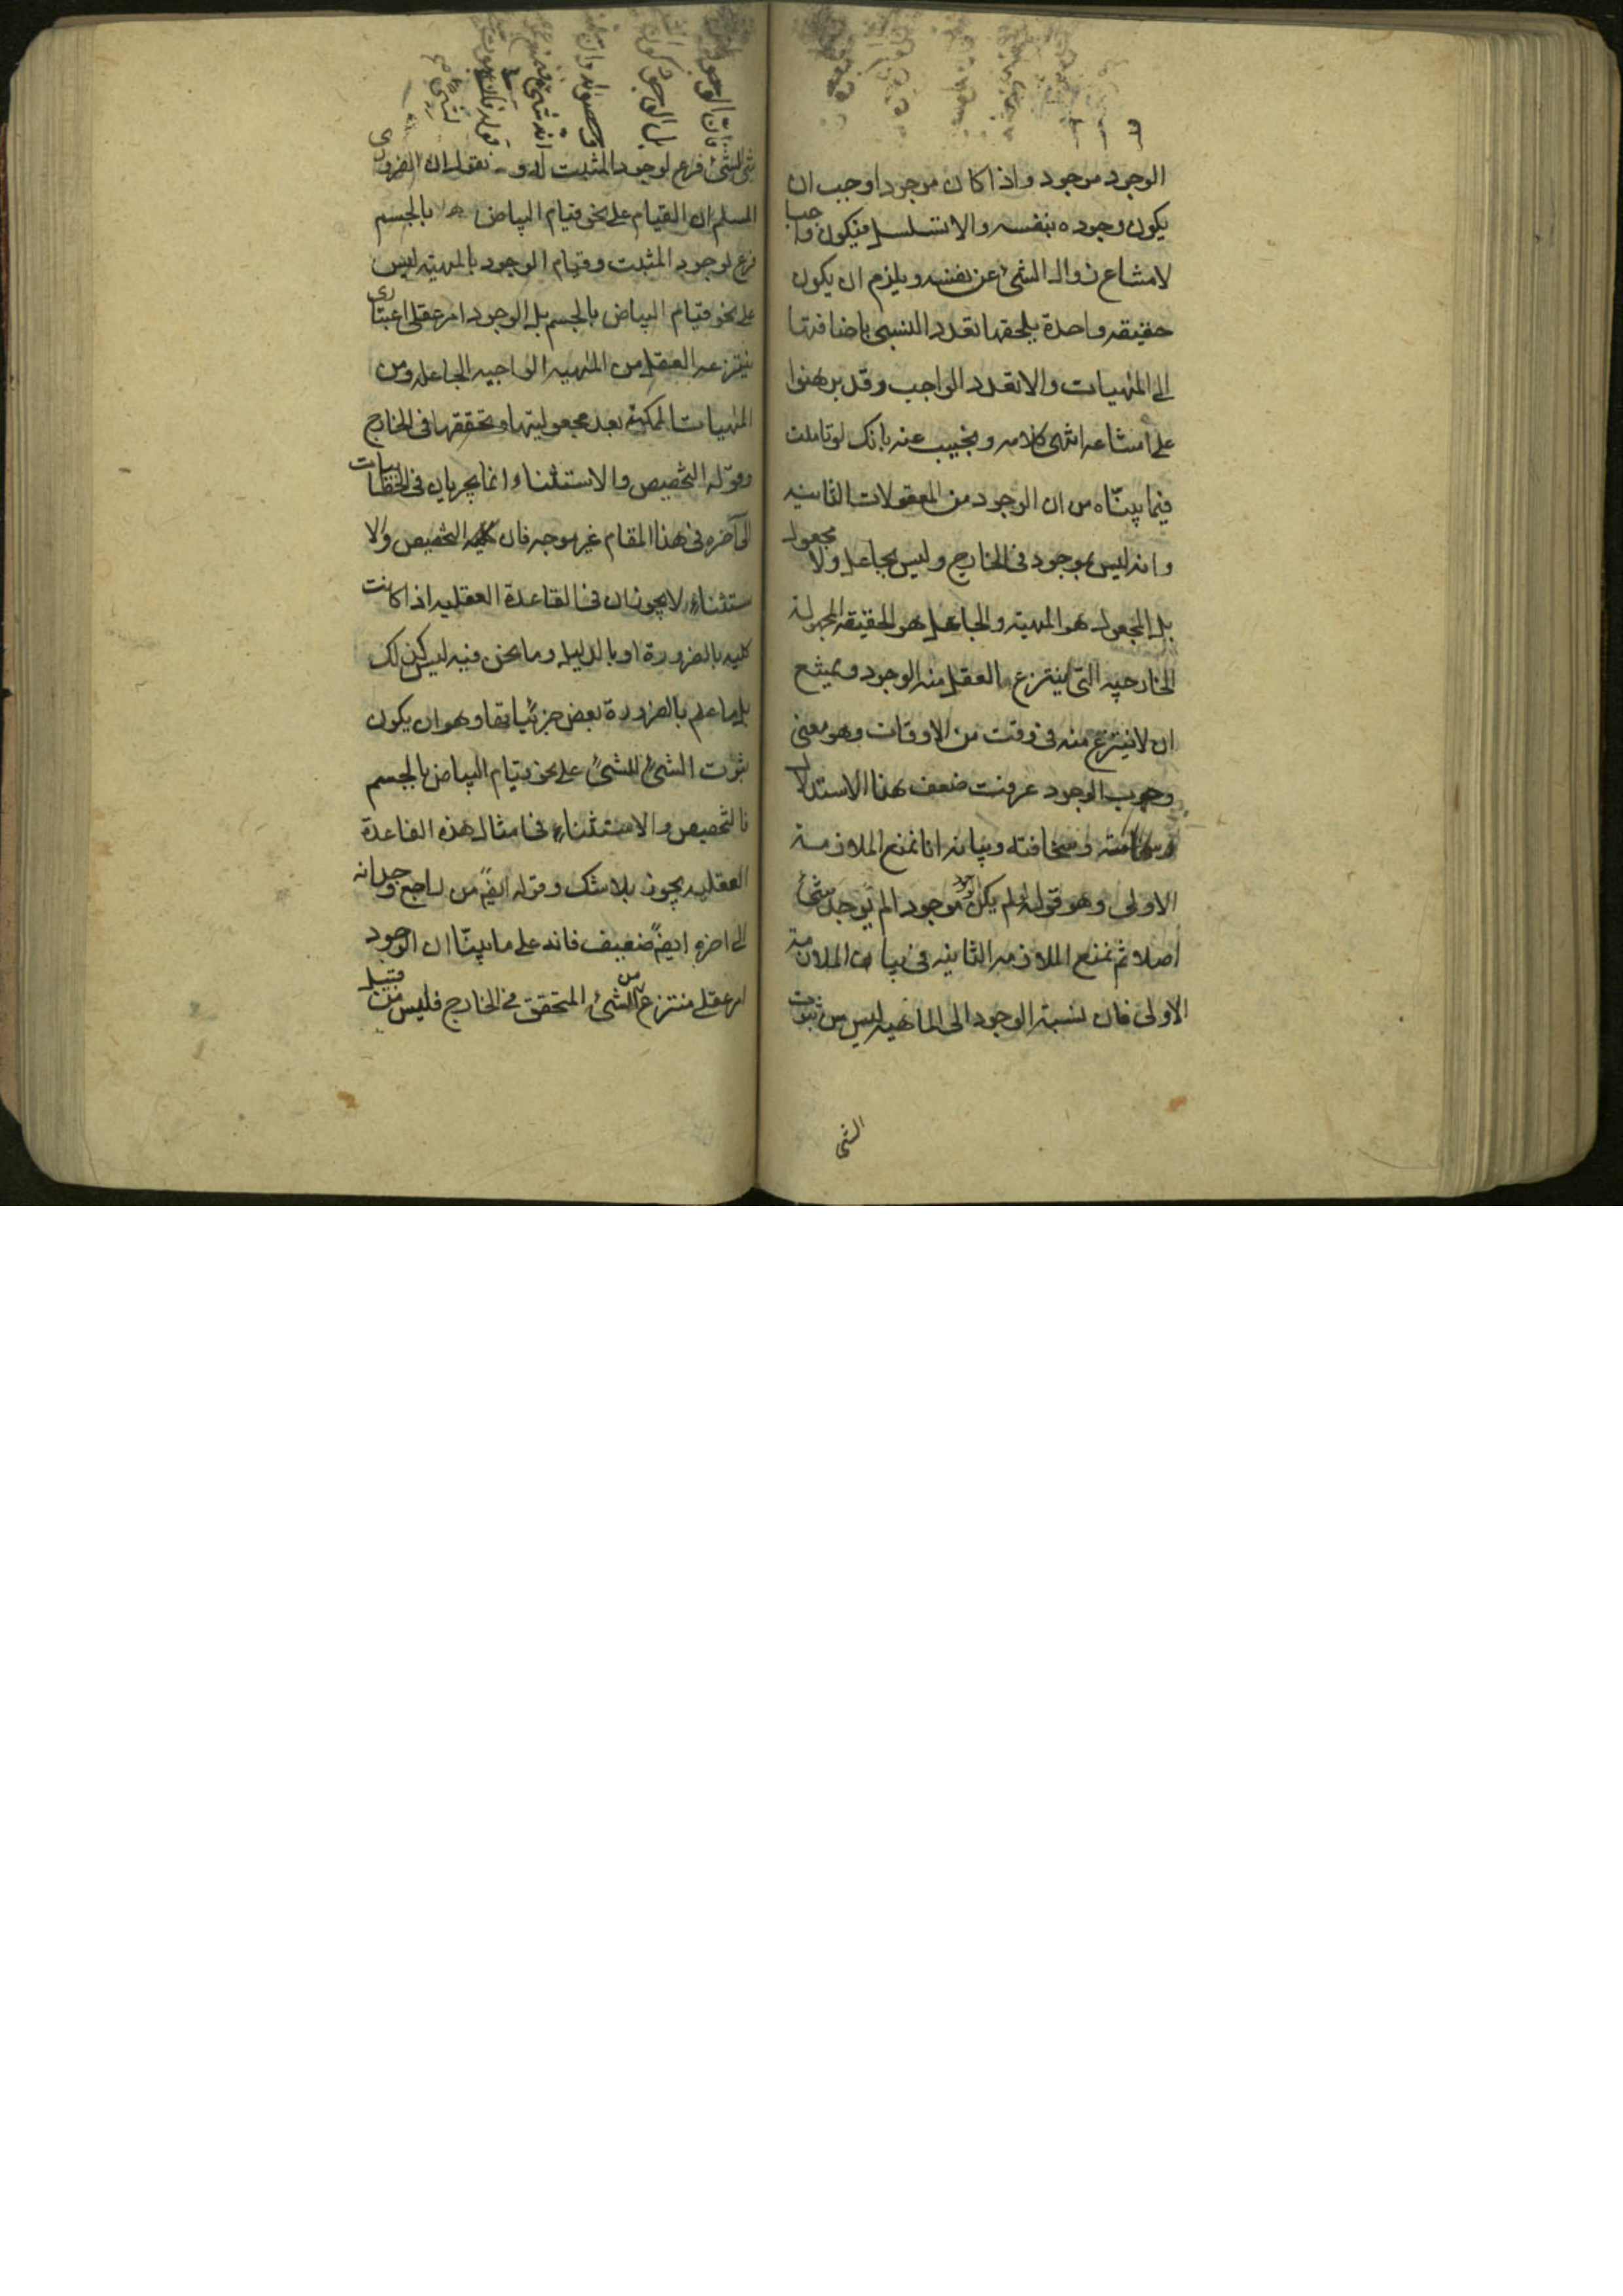 الوجود موجود واذا كان موجودا وجب ان
يكون وجوده بنفسه والا تسلسل فيكون واجبا
لامتناع زوال الشئ عن نفسه ويلزم ان يكون
حقيقه واحدة يلحقها تعدد النسبى باضافتها
الى المهيات والا تعدد الواجب وقد برهنوا
على امتناعه انتهى كلامه ونجيب عنه بانك لو تاملت
فيما بيناه من ان الوجود من المعقولات الثانيه
وانه ليس بموجود فى الخارج وليس بجاعل ولا مجعول
بل المجعول هو المهيته والجاعل هو الحقيقه المجهولة
الخارجيه التى ينتزع العقل منه الوجود ويمتنع
ان لا ينتزع منه فى وقت من الاوقات وهو معنى
وجوب الوجود عرفت ضعف هذا الاستدلال
وسخافته وبيانه انا نمنع الملازمة
الاولى وهو قوله لو لم يكن موجودا لم يوجد شئ
اصلا ثم نمنع الملازمه الثانيه فى بيان الملازمة
الاولى فان نسبة الوجود الى الماهيه ليس من ثبوت
الشئ
فان الوجود
بل الوجود
شئ للشئ فرع لوجود المثبت له و نقول ان الضرورى
المسلم ان القيام على نحو قيام البياض بالجسم
فرع لوجود المثبت وقيام الوجود بالمهيته ليس
على نحو قيام البياض بالجسم بل الوجود امر عقلى اعتبارى
ينتزعه العقل من المهيه الواجبه الجاعله ومن
المهيات الممكنه بعد مجعوليتها وتحققها فى الخارج
وقوله التخصيص والاستثناء انما يجريان فى الخطابيات
الى آخره فى هذا المقام غير موجه فان التخصيص والا
ستثناء لا يجوزان فى القاعدة العقليه اذا كانت
كليه بالضرورة او بالدليل وما نحن فيه ليس كذلك
بل ما علم بالضرورة بعض جزئياتها وهو ان يكون
ثبوت الشئ للشئ على نحو قيام البياض بالجسم
فالتخصيص والاستثناء فى امثال هذه القاعدة
العقليه يجوز بلا شك وقوله ايضً من راجع وجدانه
الى اخره ايضً ضعيف فانه على ما بيّنا ان الوجود
امر عقلى منتزع من الشئ المتحقق فى الخارج فليس من قبيل